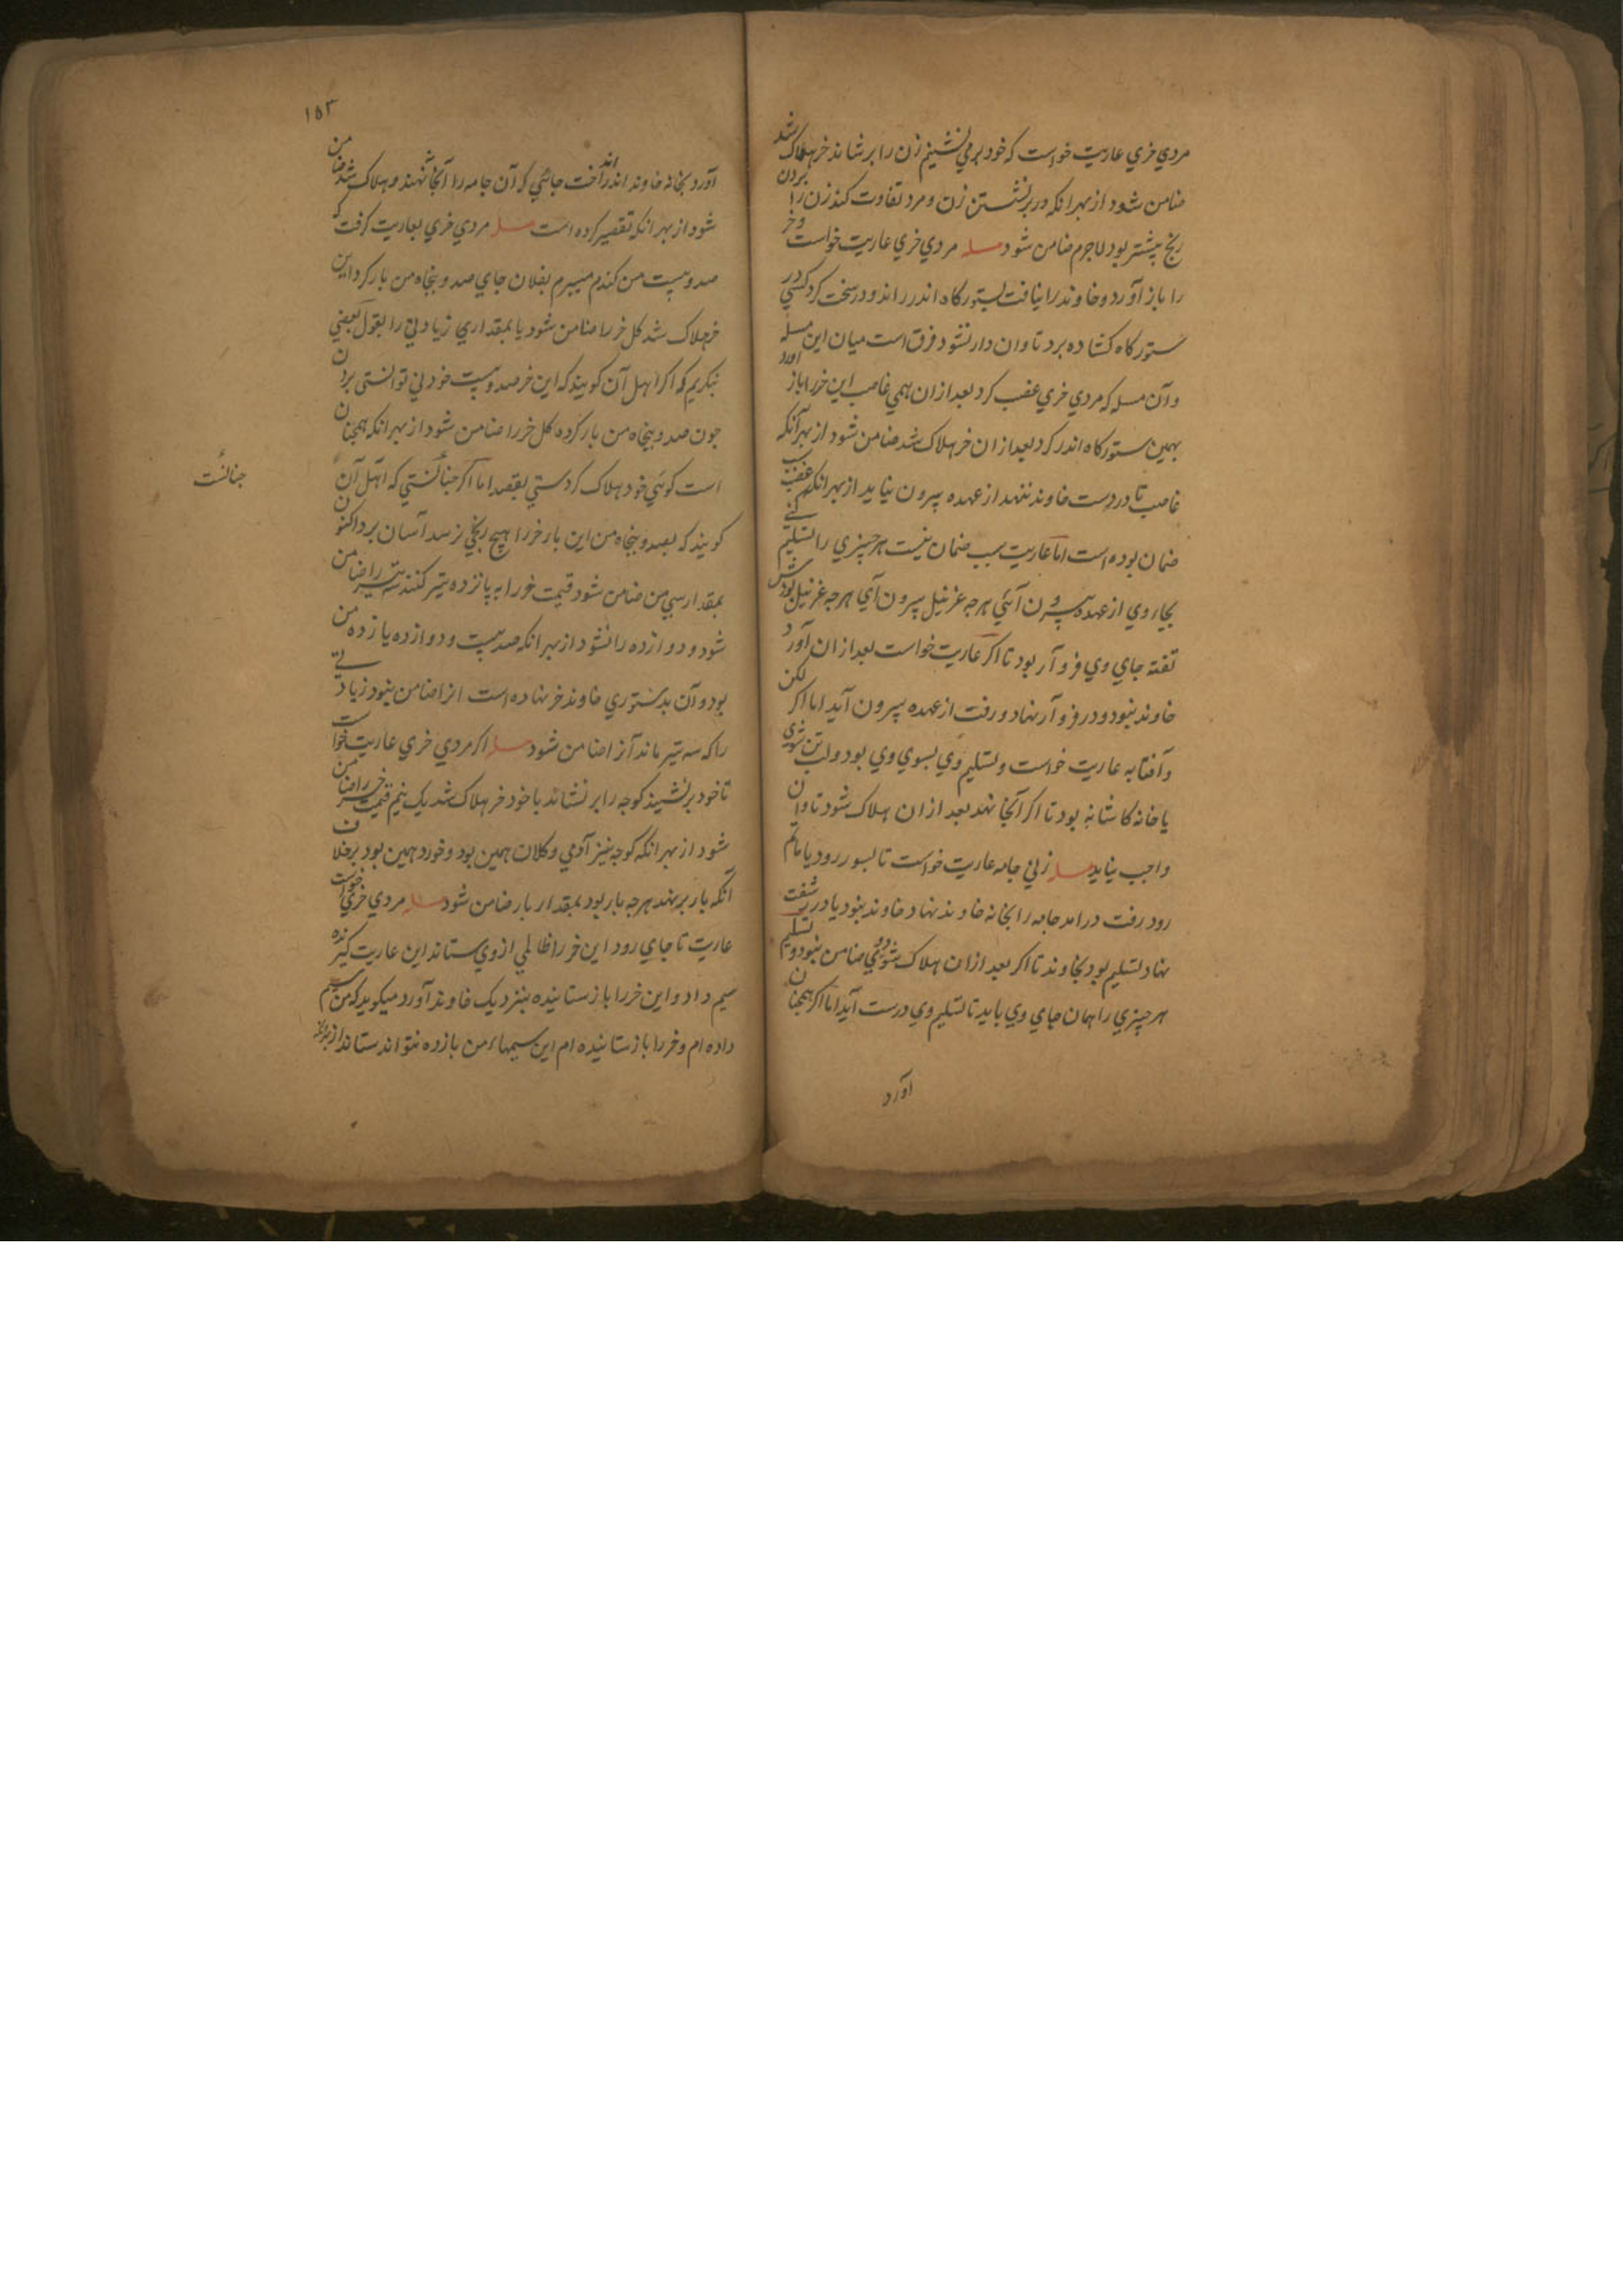 مردي خري عاريت خواست كه خود برمي نشينم زن را برنشاند خر هلاك شد
ضامن شود از بهر انكه در برنشستن زن و مرد تفاوت كند زن را بردن
رنج بيشتر بود لاجرم ضامن شود مسله مردي خري عاريت خواست و خر
را باز آورد و خاوند را نيافت بستوركاه اندر راند و در سخت كرد كسي در
ستوركاه كشاده برد تاوان دار نشود فرق است ميان اين مسله
و آن مسله كه مردي خري غصب كرد بعد ازان همي غاصب اين خر را باز آورد
بهمين ستوركاه اندر كرد بعد ازان خر هلاك شد ضامن شود از بهر آنكه
غاصب تا در دست خاوند ننهد از عهده بيرون نيايد از بهر انكه غصب
ضمان بوده است اما عاريت سبب ضمان نيست هر چيزي را تسليم كني
بجاء وي از عهده بيرون آئي هرچه عزيز بيرون آي هرچه
تفته جاي وي فرو آر بود تا اكر عاريت خواست بعد ازان آورد
خاوند نبود و در فرو آر نهاد و رفت از عهده بيرون آيد اما اكر لكن
و آفتابه عاريت خواست و تسليم وي بسوي وي بود
يا خانه كاشانه بود تا اكر آنجا نهد بعد ازان هلاك شود تاوان
واجب نيايد مسله زني جامه عاريت خواست تا بسور رود يا ماتم
رود رفت در امد جامه را بخانه خاوند نهاد خاوند نبود يا در
نهاد تسليم بود بخاوند تا اكر بعد ازان هلاك شود وي ضامن نبود و تسليم
هر چيزي را همان جاي وي بايد تا تسليم وي درست آيد اما اكر همچنان
آورد
١٥٣
آورد بخانه خاوند اندر انداخت جائي كه آن جامه را آنجا ننهند و هلاك شد ضامن
شود از بهر انكه تقصير كرده است مسله مردي خري بعاريت كرفت كه
صد و بيست من كندم ميبرم بفلان جاي صد و پنجاه من بار كرد اين
خر هلاك شد كل خر را ضامن شود يا بمقداري زيادتي را بقول بعضي
نيكريم كه اكر اهل آن كويند كه اين خر صد و بيست خود ني توانستي بردن
چون صد و پنجاه من بار كرده كل خر را ضامن شود از بهر انكه همچنان
است كوئي خود هلاك كردستي بقصد اما اكر چنانستي كه اهل آن
چنانست
كويند كه بصد و پنجاه من اين بار خر را هيچ رنجي نرسد آسان برد اكنون
بمقدار سي من ضامن شود قيمت خر را به پانزده تير كنند سه تير را ضامن
شود و دوازده را نشود از بهر انكه صد بيست و دوازده يازده من
بود و آن بدستوري خاوند خر نهاده است انرا ضامن نبود زيادتي
را كه سه تير ماند آنرا ضامن شود مسله اكر مردي خري عاريت خواست
تا خود برنشيند كوچه را برنشاند با خود خر هلاك شد يك نيم قيمت خر را ضامن
شود از بهر انكه كوچه نيز آدمي و كلان همين بود و خورد همين بود بر خلاف
آنكه بار بر نهد هرچه بار بود بمقدار بار ضامن شود مسله مردي خري خواست
عاريت تا جاي رود اين خر را ظالمي از وي ستاند اين عاريت كيرنده
سيم داد و اين خر را باز ستانيده بنزديك خاوند آورد ميكويد كه من سيم
داده ام و خر را باز ستانيده ام اين سيمهاء من بازده نتواند ستاند از بهر انكه